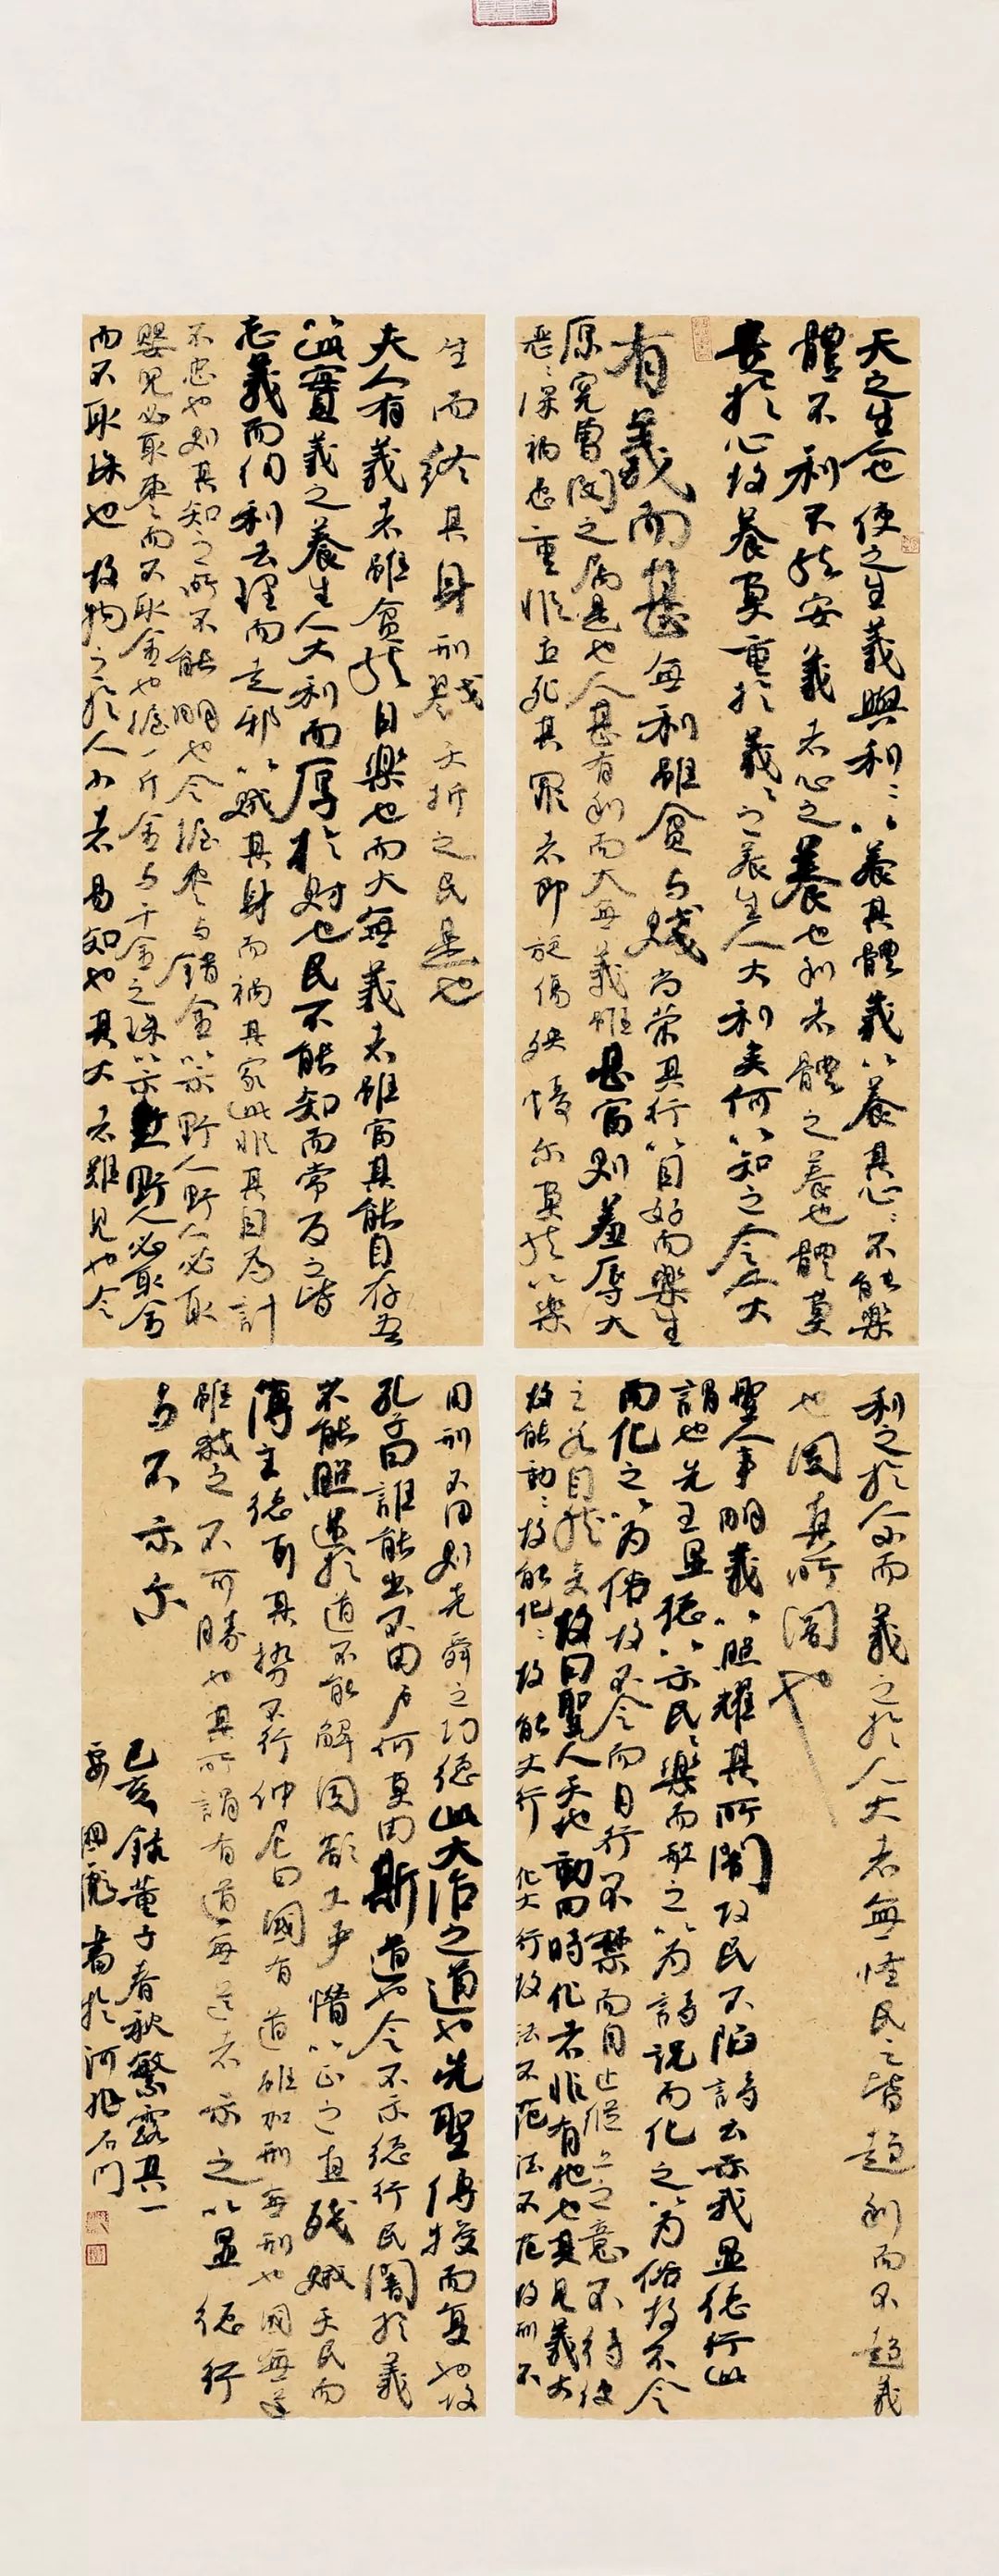 天之生人也使之生義與利=以養其體義以養其心=不能樂
體不利不能安義者心之養也利者體之養也體莫
貴於心故養莫重於義=之養生人大利矣何以知之今人大
有義而甚無利雖貧与賤尚榮其行以自好而樂生
原憲曾閔之属是也人甚有利而大無義雖甚富則羞辱大
惡=深禍患重非立死其罪者即旋傷殃憂尔莫能以樂
生而終其身刑戮夭折之民是也
夫人有義者雖貧能自樂也而大無義者雖富莫能自存吾
以此實義之養生人大利而厚於財也民不能知而常反之皆
忘義而徇利去理而走邪以賊其身而禍其家此非其自為計
不忠也則其知之所不能明也今握枣与錯金以示野人野人必取
嬰兒必取枣而不取金也握一斤金与千金之珠以示野人必取金
而不取珠也故物之於人小者易知也其大者難見也今
利之於人小而義之於人大者無怪民之皆趨利而不趨義
也固其所闇也
聖人事明義以照耀其所闇故民不陷詩云示我显德行此
謂也先王显德以示民=樂而歌之以为詩說而化之以为俗故不令
而化之以为俗故不令而自行不禁而自止從上之意不待使
之若自然矣故曰聖人天地動四時化者非有他也其見義大
故能動=故能化=故能大行化大行故法不犯法不犯故刑不
用刑不用則堯舜之功德此大治之道也先聖傳授而复也故
孔子曰誰能出不由戶何莫由斯道也今不示德行民闇於義
不能照迷於道不能解固欲大嚴憯以正之直殘賊天民而
薄主德耳其勢不行仲尼曰國有道雖加刑無刑也國無道
雖殺之不可勝也其所謂有道無道者示之以显德行
与不示尔
己亥錄董子春秋繁露其一
國彪書於河北石門